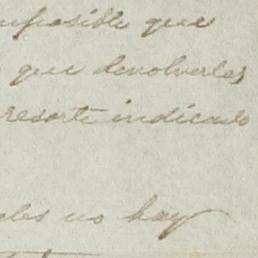 imposible que
que devolverles
resorte indicado
les no hay